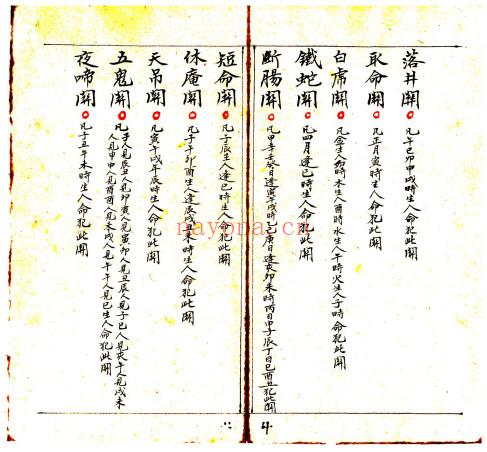 落井関 凡午巳卯申戌時生人命犯此関
取命関 凡正月寅時生人命犯此関
白虎関 凡金生人卯時木生人酉時水生人午時火生人子時命犯此関
鐵蛇関 凡四月逢巳時生人命犯此関
断腸関 凡甲辛壬癸日逢寅午戌時乙己庚日逢亥卯未時丙日申子辰丁日巳酉丑犯此関
短命関 凡子辰生人逢巳時生人命犯此関
休庵関 凡子午卯酉生人逢辰戌丑未時生人命犯此関
天吊関 凡寅午戌年辰時生人命犯此関
五鬼関 凡子人見辰丑人見卯寅人見寅卯人見丑辰人見子巳人見亥午人見戌未
人見申申人見酉酉人見未戌人見午午人見巳生人命犯此関
夜啼関 凡子丑午未時生人命犯此関
nayona.cn